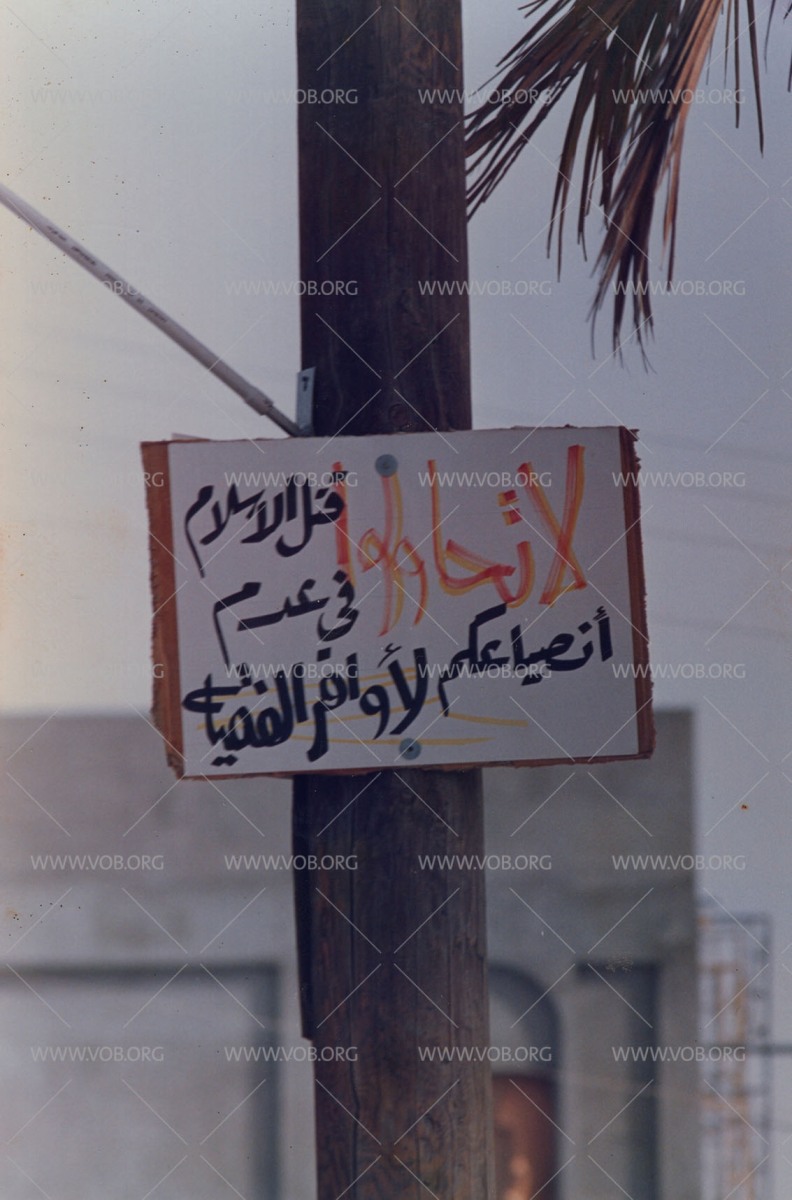 WWW.VOB.ORG WWW.VOB.ORG WWW.VOB.ORG WWW.VOB.ORG
WWW.VOB.ORG WWW.VOB.ORG WWW.VOB.ORG WWW.VOB.ORG
لا تحاولوا قتل الاسلام
WWW.VOB.ORG WWW.VOB.ORG WWW.VOB.ORG WWW.VOB.ORG
في عدم
أنصياعكم لأوامر
WWW.VOB.ORG WWW.VOB.ORG WWW.VOB.ORG WWW.VOB.ORG
WWW.VOB.ORG WWW.VOB.ORG WWW.VOB.ORG WWW.VOB.ORG
WWW.VOB.ORG WWW.VOB.ORG WWW.VOB.ORG WWW.VOB.ORG